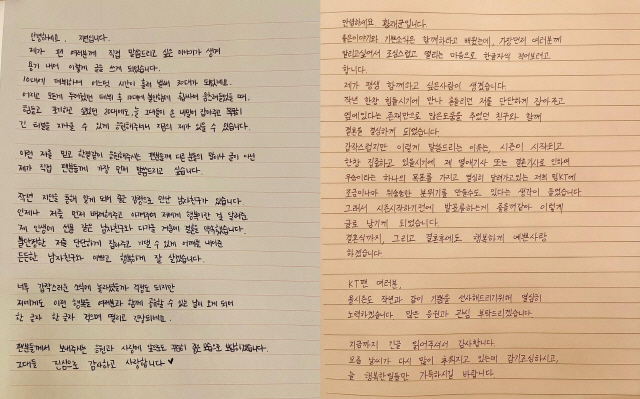 안녕하세요. 지연입니다.
제가 팬 여러분께 직접 말씀드리고 싶은 이야기가 생겨
용기 내어 이렇게 글을 쓰게 되었습니다.
10대에 데뷔하여 어느덧 시간이 흘러 벌써 30대가 되었네요.
어리고 모든게 부족했던 데뷔 후 10대에 불안함과
힘들고 포기하고 싶었던 20대에도, 늘 그대들이 손 내밀어 잡아주고 묵묵히
긴 터널을 지나올 수 있게 응원해주셔서 지금의 제가 있을 수 있습니다.
이런 저를 믿고 한결같이 응원해주시는 팬분들께 다른 분들의 말이나 글이 아닌
제가 직접 팬분들께 가장 먼저 말씀드리고 싶습니다.
작년 지인을 통해 알게 되어 좋은 감정으로 만난 남자친구가 있습니다.
언제나 저를 먼저 배려해주고 아껴주며 저에게 행복이란 걸 알려준,
제 인생에 선물 같은 남자친구와 다가올 겨울에 결혼을 약속했습니다.
불안정한 저를 단단하게 잡아주고 기댈 수 있게 어깨를 내어준
든든한 남자친구와 예쁘고 행복하게 잘 살겠습니다.
너무 갑작스러운 소식에 놀라셨을까 걱정도 되지만
저에게도 이런 행복을 여러분과 함께 공유할 수 있는 날이 오게 되어
한 글자 한 글자 적으며 떨리고 긴장되네요.
팬분들께서 보내주시는 응원과 사랑에 앞으로도 꾸준히 좋은 모습으로 보답하겠습니다.
그대들 진심으로 감사하고 사랑합니다♥
안녕하세요 황재균입니다.
좋은이야기와 기쁜소식은 함께하라고 배웠는데, 가장먼저 여러분께
알리고싶어서 조심스럽고 떨리는 마음으로 한글자씩 적어보려고
합니다.
제가 평생 함께하고 싶은사람이 생겼습니다
작년 한창 힘들시기에 만나 흔들리던 저를 단단하게 잡아주고
옆에있다는 존재만으로 많은도움을 주었던 친구와 함께
결혼을 결심하게 되었습니다
갑작스럽지만 이렇게 말씀드리는 이유는, 시즌이 시작되고
한창 집중하고 있을시기에 제 열애기사 또는 결혼기사로 인하여
우승이라는 하나의 목표를 가지고 열심히 달려가고있는 저희 팀KT에
조금이나마 뒤숭숭한 분위기를 만들수도 있다는 생각이 들었습니다
그래서 시즌시작하기전에 발표를하는게 좋을꺼같아 이렇게
글로 남기게 되었습니다.
결혼식까지, 그리고 결혼후에도 행복하게 예쁜사랑
하겠습니다.
KT팬 여러분,
올시즌도 작년과 같이 기쁨을 선사해드리기위해 열심히
노력하겠습니다. 많은 응원과 관심 부탁드리겠습니다.
지금까지 긴글 읽어주셔서 감사합니다.
요즘 날씨가 다시 많이 추워지고 있는데 감기조심하시고,
늘 행복한일들만 가득하시길 바랍니다.